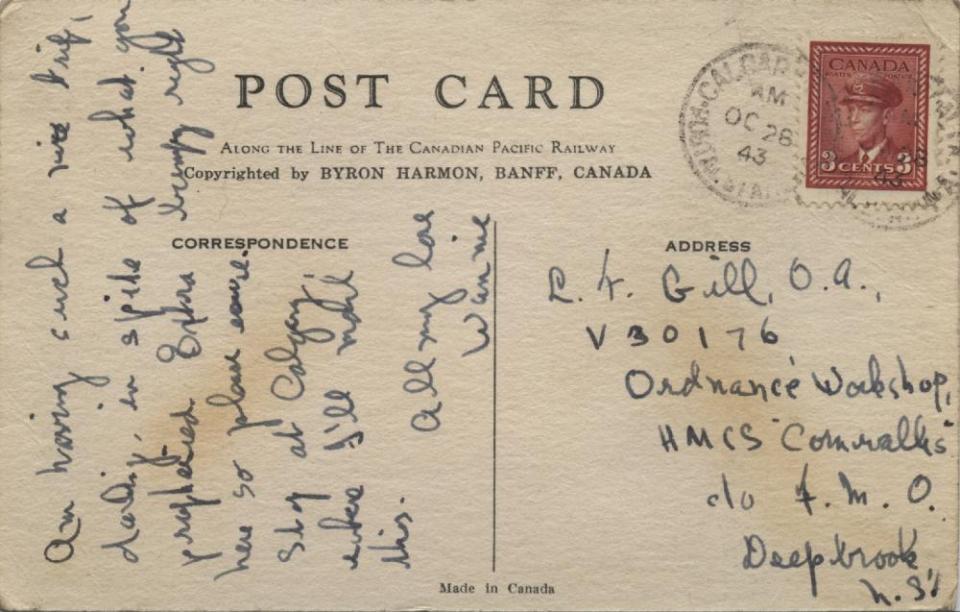 POST CARD
ALONG THE LINE OF THE CANADIAN PACIFIC RAILWAY
Copyrighted by BYRON HARMON, BANFF, CANADA
CALGARY
AM
OC 28
43
CANADA
POSTES POSTAGE
3 CENTS 3
CORRESPONDENCE
Am having such a nice trip,
darling, in spite of what you
prophesied. Extra bumpy right
here so please excuse.
Stop at Calgary
where I'll mail
this.
All my love
Wannie
ADDRESS
L. F. Gill, O.A.,
V30176
Ordnance Workshop,
HMCS "Cornwallis"
c/o F.M.O.
Deepbrook,
N.S.
Made in Canada